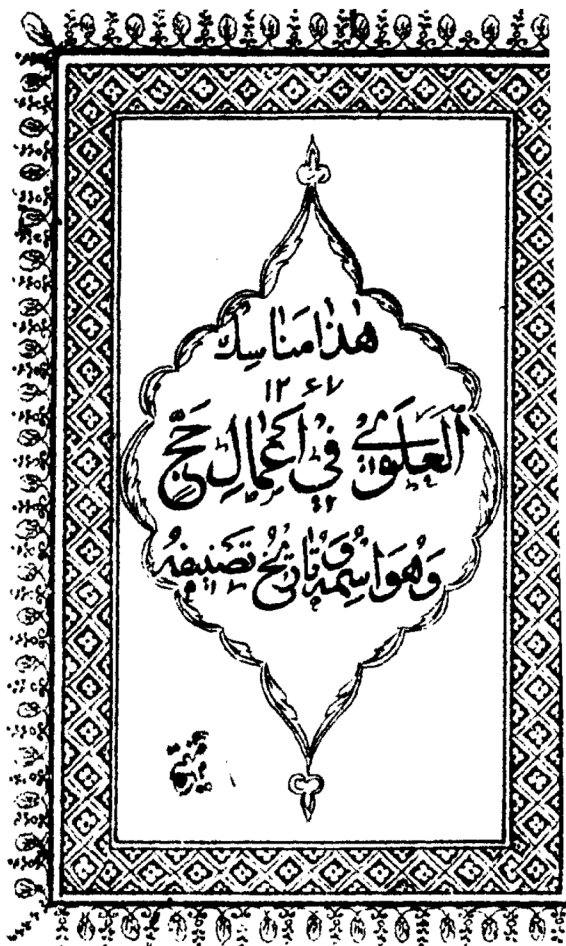 هٰذا مَناسِك
١٢۶٧
اَلعَلَوِي في اَعمالِ حَجّ
وَهُوَ اسِمُهُ وَتاريخُ تَصنيفِهُ